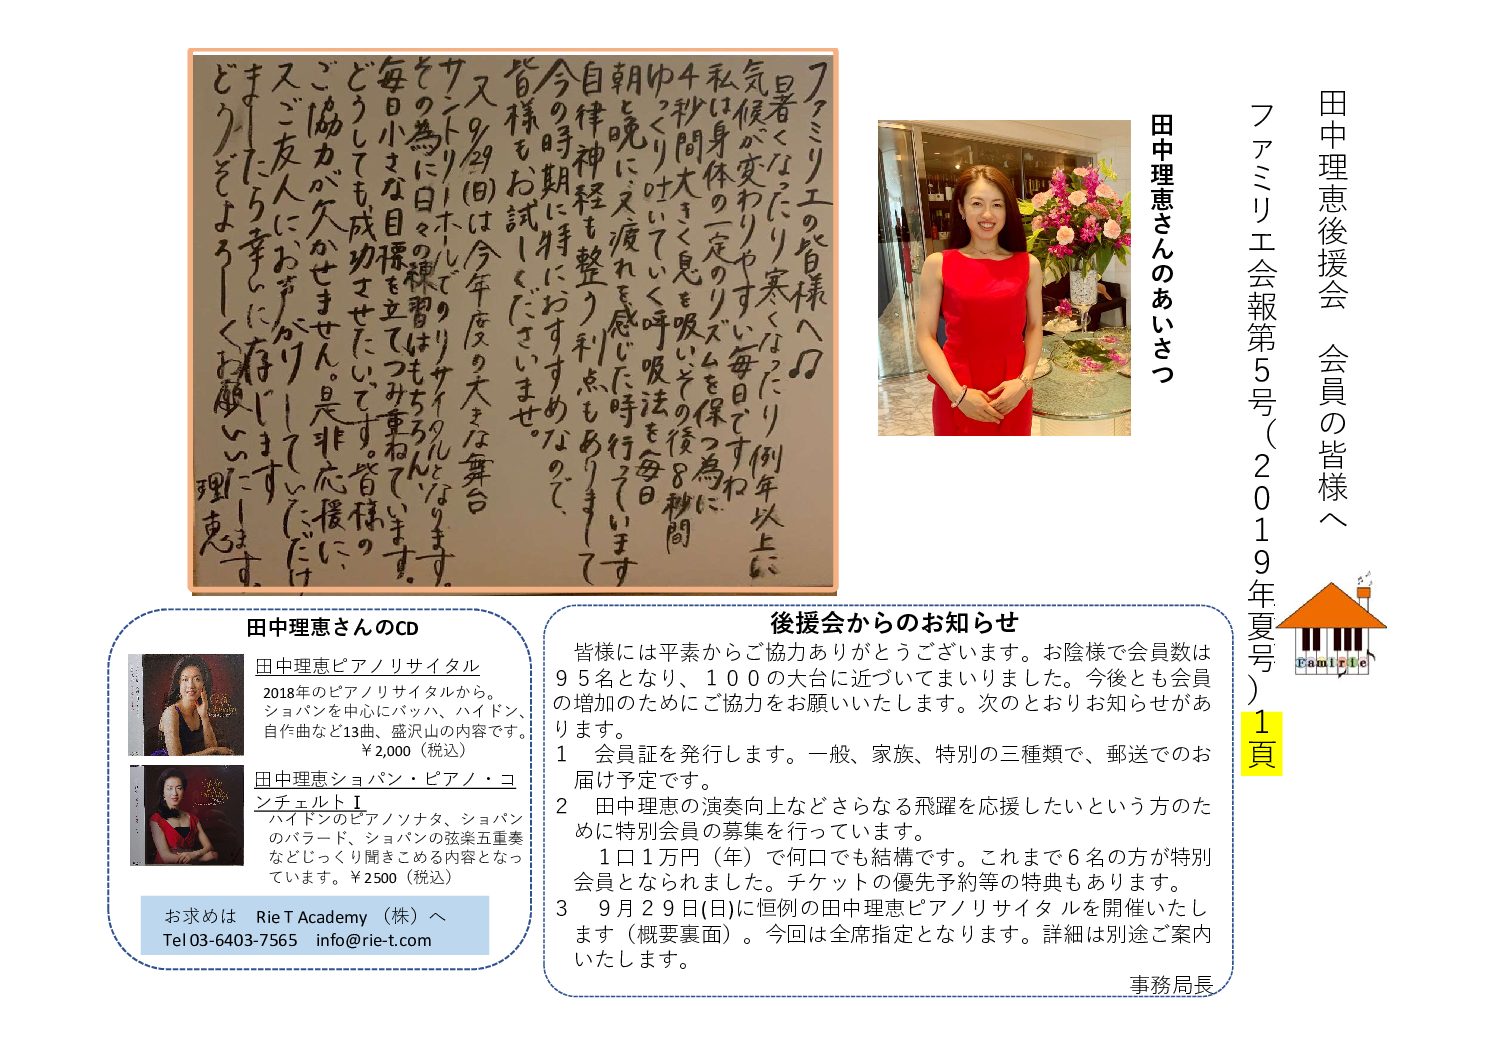 田中理恵後援会　会員の皆様へ
ファミリエ会報第5号（2019年夏号）1頁
Famirie
田中理恵さんのあいさつ
ファミリエの皆様へ♫
暑くなったり寒くなったり例年以上に
気候が変わりやすい毎日ですね
私は身体の一定のリズムを保つ為に
4秒間大きく息を吸いその後8秒間
ゆっくり吐いていく呼吸法を毎日
朝と晩に、又疲れを感じた時行っています
自律神経も整う利点もありまして
今の時期に特におすすめなので、
皆様もお試しくださいませ。
又9/29(日)は今年度の大きな舞台
サントリーホールでのリサイタルとなります。
その為に日々の練習はもちろん、
毎日小さな目標を立てつみ重ねています。
どうしても成功させたいです。皆様の
ご協力が欠かせません。是非応援に、
又ご友人にお声がけしていただけ
ましたら幸いに存じます
どうぞよろしくお願いいたします。
理恵
田中理恵さんのCD
田中理恵ピアノリサイタル
2018年のピアノリサイタルから。
ショパンを中心にバッハ、ハイドン、
自作曲など13曲、盛沢山の内容です。
￥2,000（税込）
田中理恵ショパン・ピアノ・コ
ンチェルトⅠ
ハイドンのピアノソナタ、ショパン
のバラード、ショパンの弦楽五重奏
などじっくり聞きこめる内容となっ
ています。￥2500（税込）
お求めは　Rie T Academy （株）へ
Tel 03-6403-7565　info@rie-t.com
後援会からのお知らせ
皆様には平素からご協力ありがとうございます。お陰様で会員数は
９５名となり、１００の大台に近づいてまいりました。今後とも会員
の増加のためにご協力をお願いいたします。次のとおりお知らせがあ
ります。
1　会員証を発行します。一般、家族、特別の三種類で、郵送でのお
届け予定です。
2　田中理恵の演奏向上などさらなる飛躍を応援したいという方のた
めに特別会員の募集を行っています。
１口１万円（年）で何口でも結構です。これまで６名の方が特別
会員となられました。チケットの優先予約等の特典もあります。
3　９月２９日(日)に恒例の田中理恵ピアノリサイタルを開催いたし
ます（概要裏面）。今回は全席指定となります。詳細は別途ご案内
いたします。
事務局長